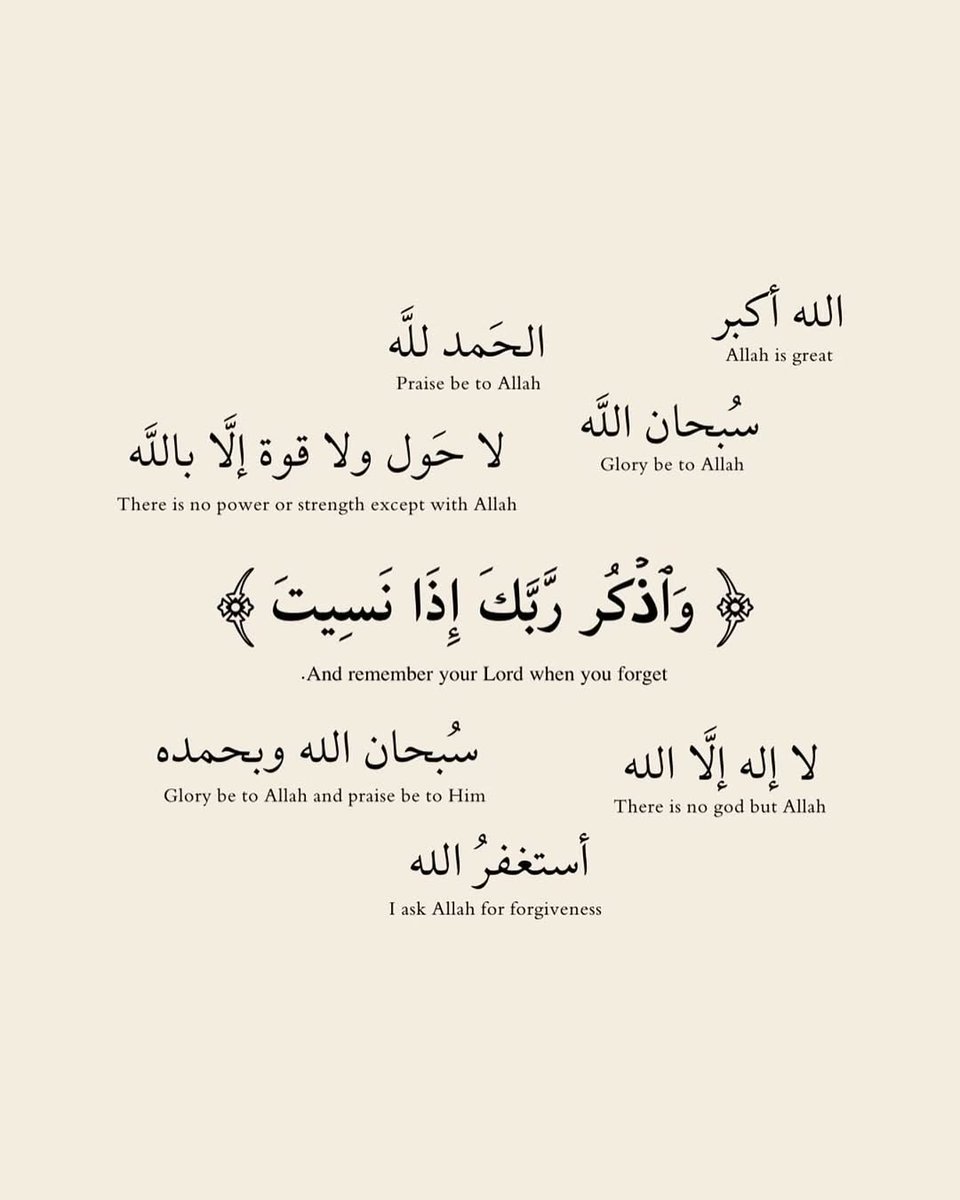 الله أكبر
Allah is great
الحَمد للَّه
Praise be to Allah
سُبحان اللَّه
Glory be to Allah
لا حَول ولا قوة إلَّا باللَّه
There is no power or strength except with Allah
﴿ وَٱذۡكُر رَّبَّكَ إِذَا نَسِيتَ ﴾
.And remember your Lord when you forget
سُبحان الله وبحمده
Glory be to Allah and praise be to Him
لا إله إلَّا الله
There is no god but Allah
أستغفرُ الله
I ask Allah for forgiveness